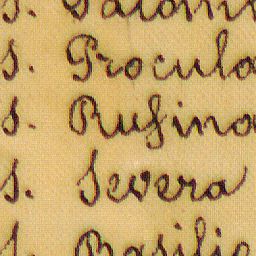 S.
S. Procula
S. Rufina
S. Severa
S. Basilic